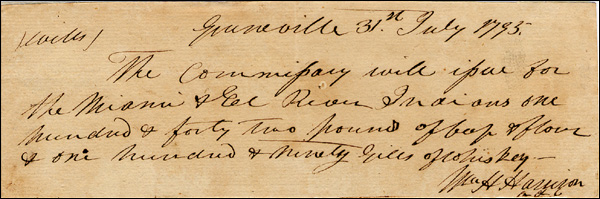 Greeneville 31.st July 1795.
The Commissary will issue for
the Miami & Eel River Indians one
hundred & forty two pound of beef & flour
& one hundred & Ninety Gills of Whiskey —
Wm H Harrison